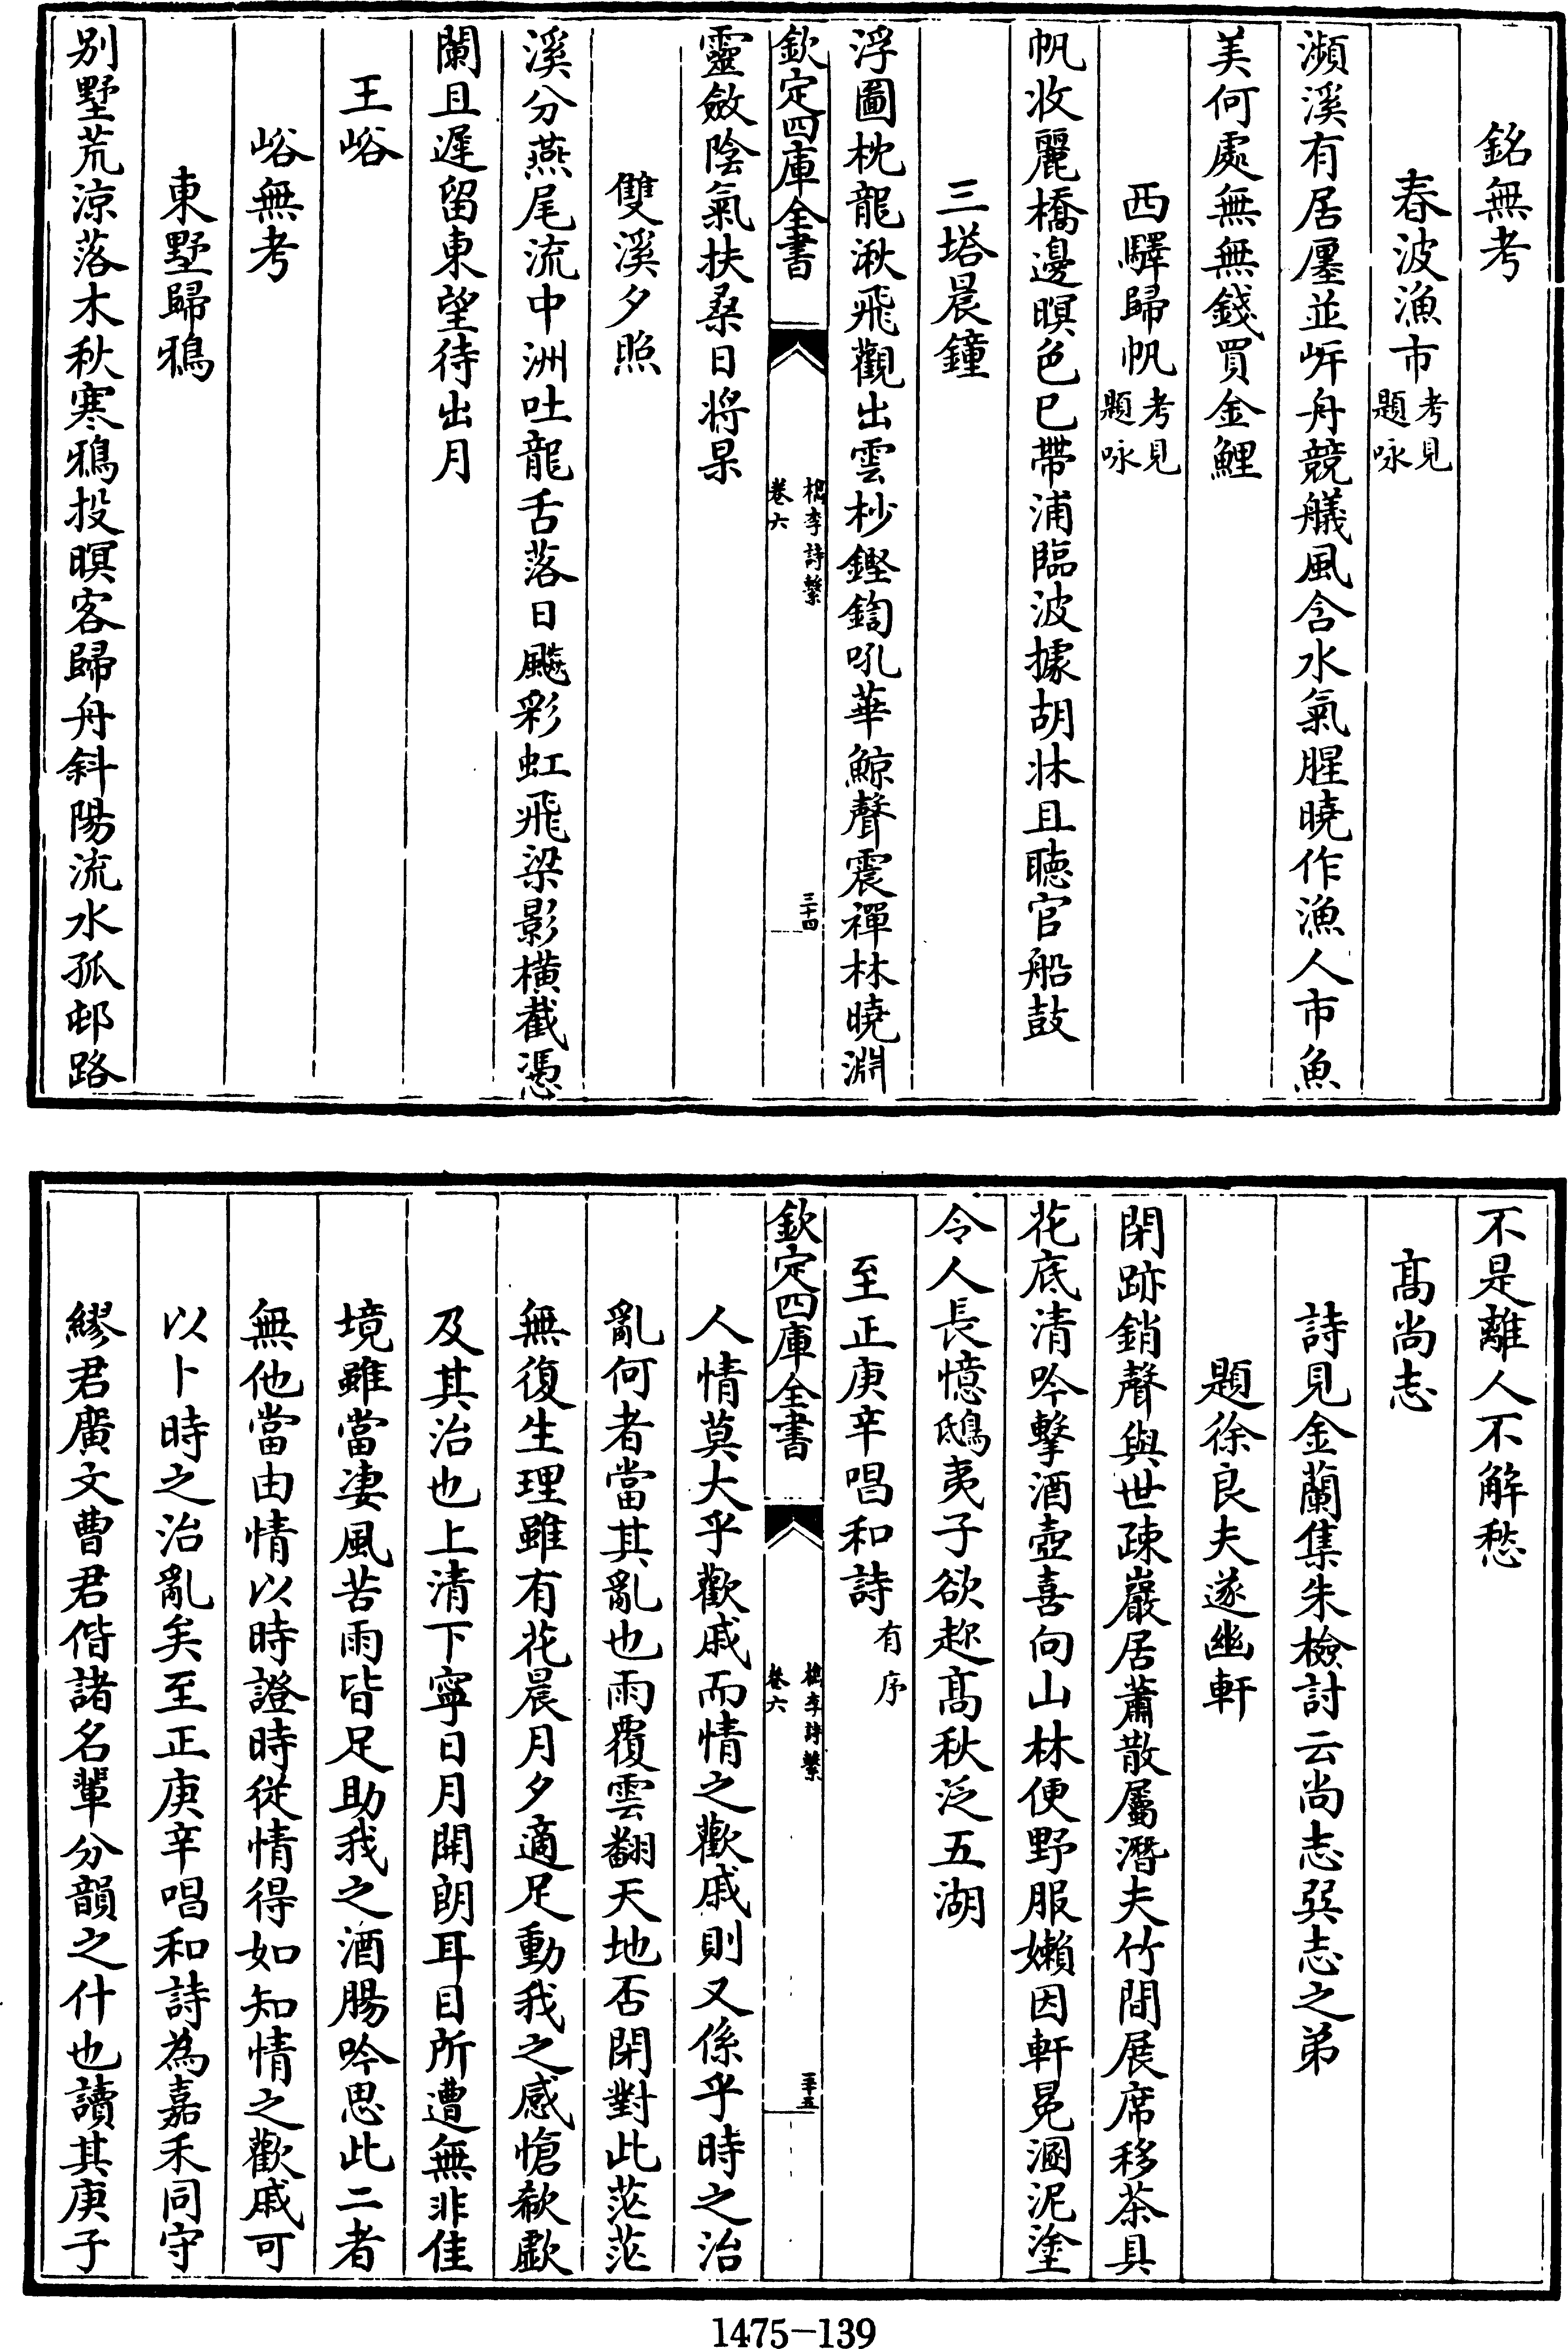 銘無考
春波漁市考見題咏
瀕溪有居廛並岍舟競艤風含水氣腥曉作漁人市魚
美何處無無錢買金鯉
西驛歸帆考見題咏
帆收麗橋邊暝色已帶浦臨波據胡牀且聴官船鼓
三塔晨鐘
浮圖枕龍湫飛觀出雲杪鏗鍧吼華鯨聲震禪林曉淵
欽定四庫全書
檇李詩繫
卷六
三十四
靈斂陰氣扶桑日将杲
雙溪夕照
溪分燕尾流中洲吐龍舌落日颺彩虹飛梁影橫截憑
闌且遲留東望待出月
王峪
峪無考
東墅歸鴉
别墅荒涼落木秋寒鴉投暝客歸舟斜陽流水孤邨路
不是離人不解愁
髙尚志
詩見金蘭集朱檢討云尚志巽志之弟
題徐良夫遂幽軒
閉跡銷聲與世疎巖居蕭散屬潛夫竹間展席移茶具
花底清吟擊酒壺喜向山林便野服嬾因軒冕溷泥塗
令人長憶鴟夷子欲趂髙秋泛五湖
至正庚辛唱和詩有序
欽定四庫全書
檇李詩繫
卷六
三十五
人情莫大乎歡戚而情之歡戚則又係乎時之治
亂何者當其亂也雨覆雲翻天地否閉對此茫茫
無復生理雖有花晨月夕適足動我之感愴欷歔
及其治也上清下寧日月開朗耳目所遭無非佳
境雖當凄風苦雨皆足助我之酒腸吟思此二者
無他當由情以時證時從情得如知情之歡戚可
以卜時之治亂矣至正庚辛唱和詩為嘉禾同守
繆君廣文曹君偕諸名輩分韻之什也讀其庚子
1475-139